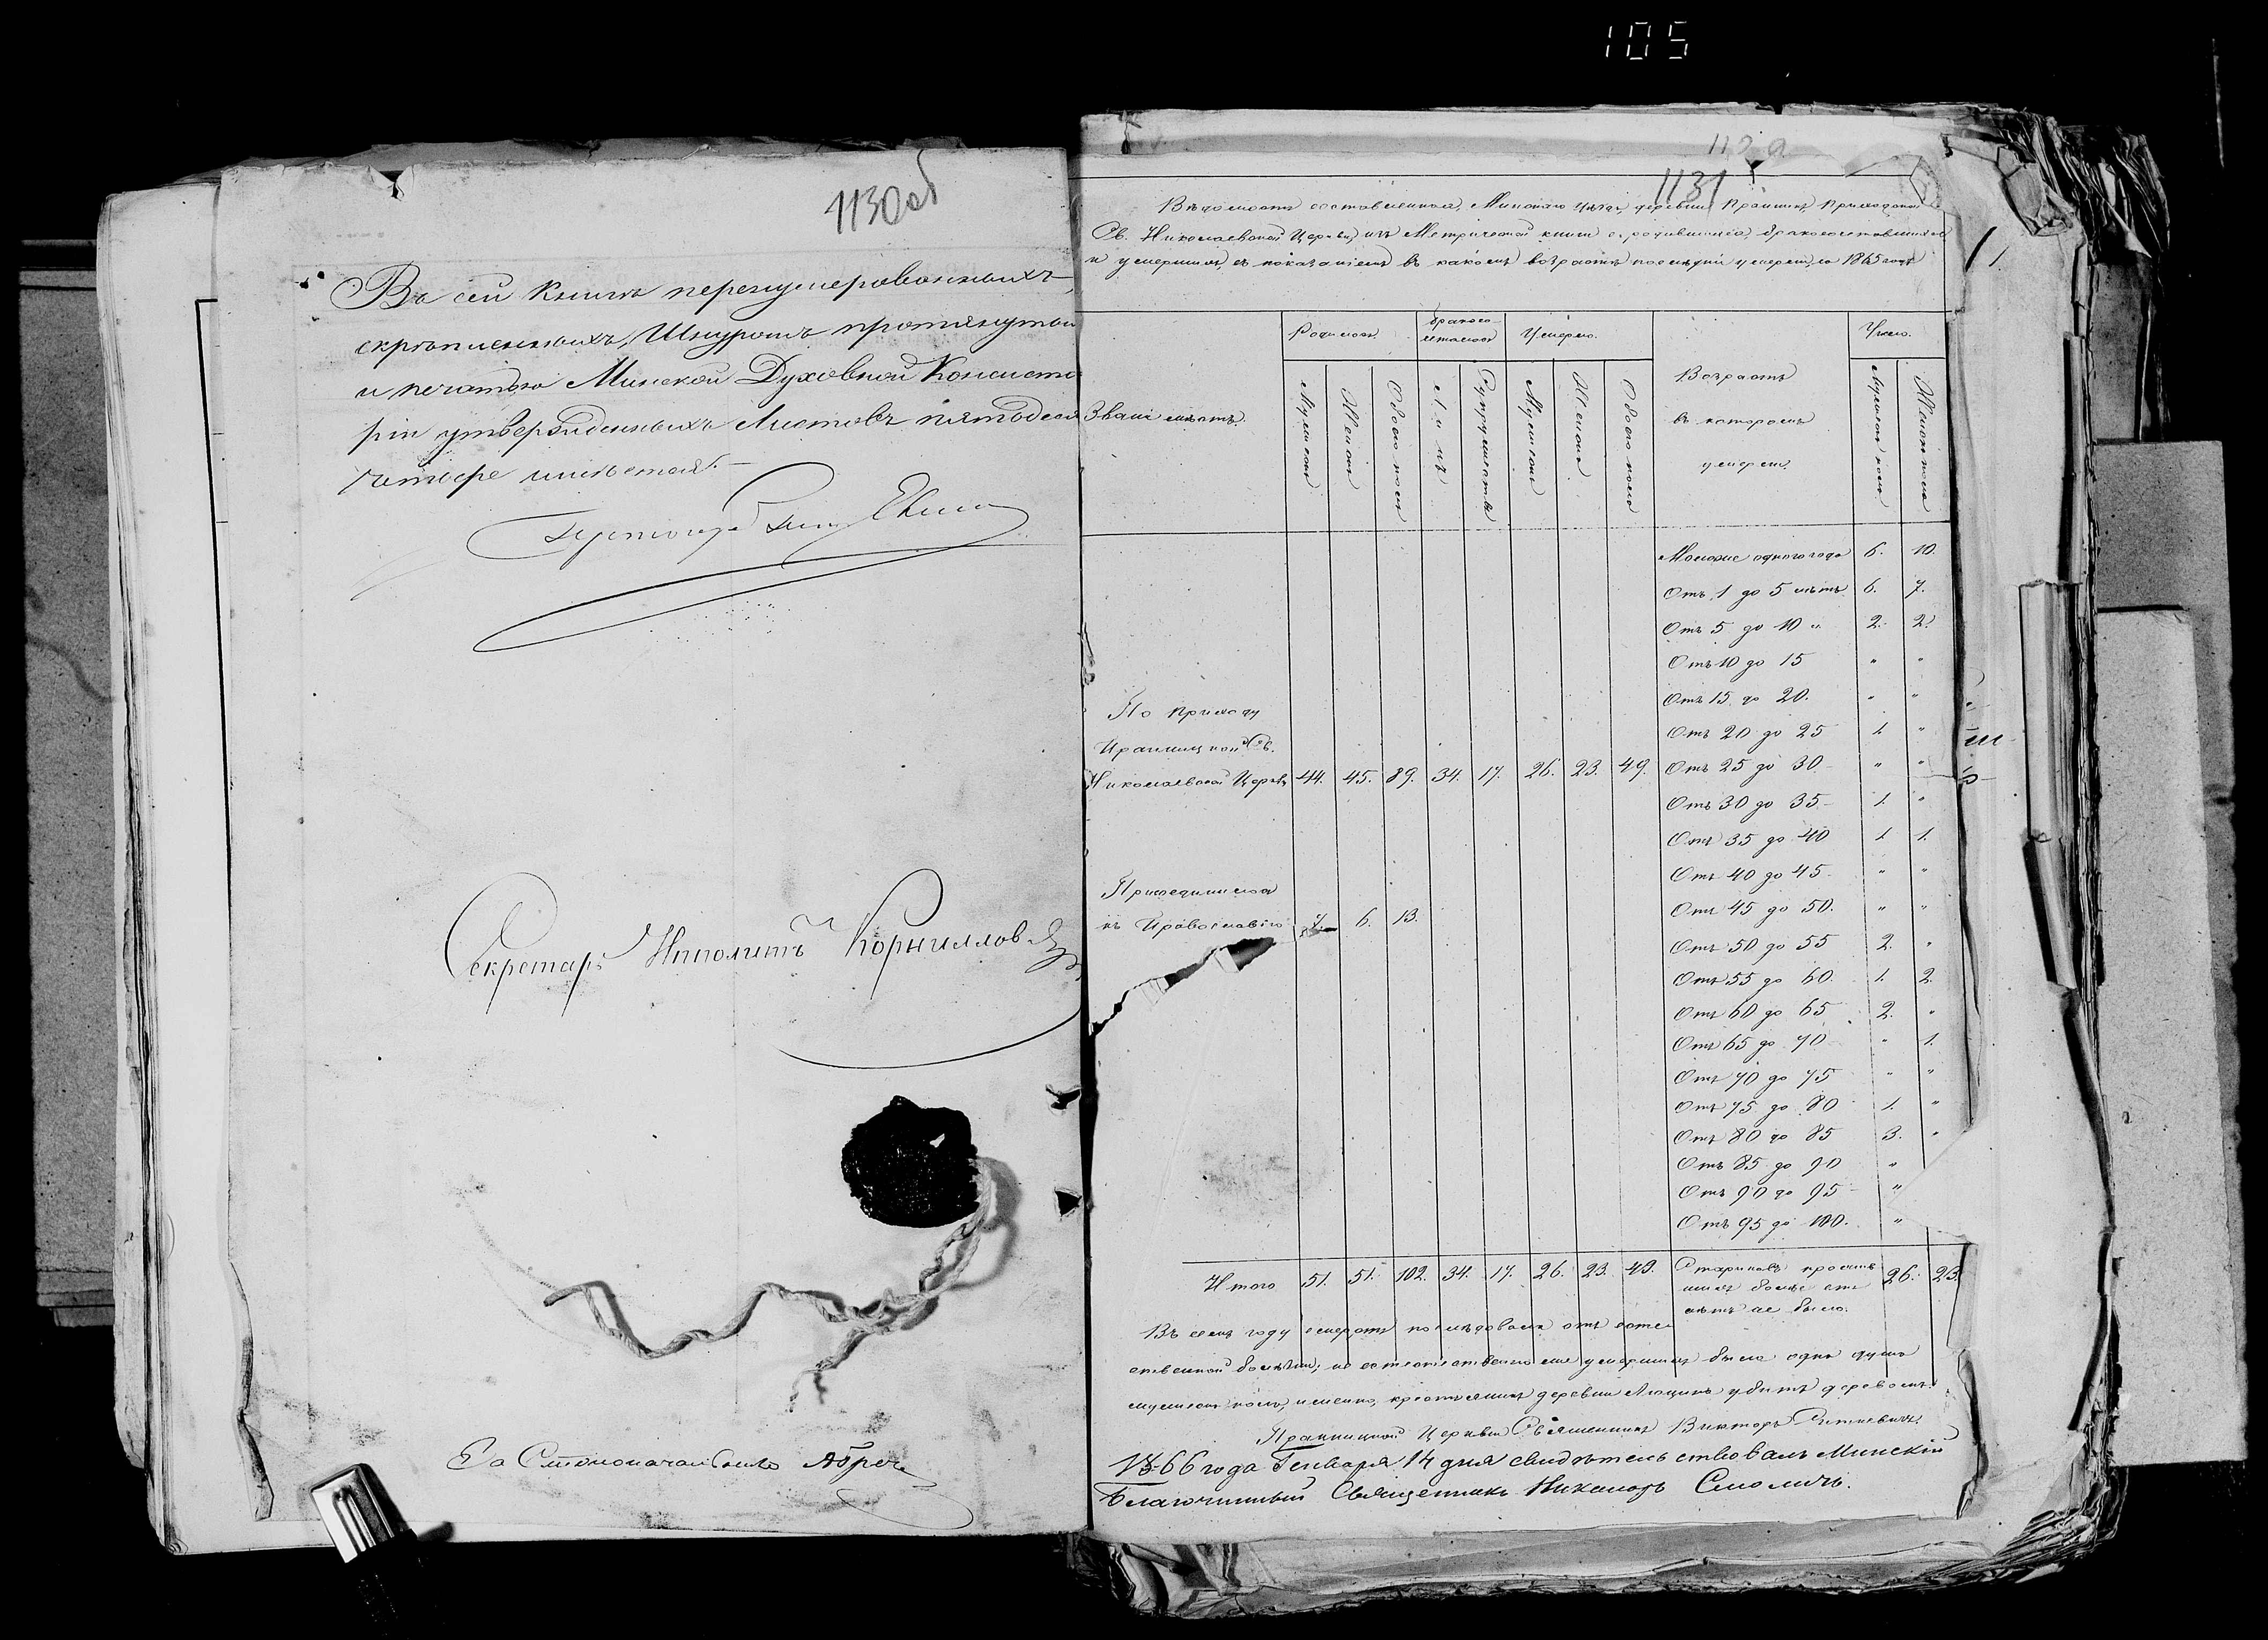 105
1130 об
Въ сей Книгѣ перенумерованныхъ,
скрѣпленныхъ, Шнуромъ протянутых
и печатью Минской Духовной Консисто
ріи утвержденныхъ Листовъ пятьдеся
четыре имѣется.
Секретарь Ипполитъ Корниллов
За Столоначальника
1131
Вѣдомость составленная, Минскаго Уѣзда, деревни Приходской
Св. Николаевской Церкви, изъ Метрической книги о родившихся, бракосочетавшихся
и умершихъ, съ показаніемъ въ какомъ возрастѣ послѣдніе умерли, за 1865 годъ
Званіе мѣстъ.
Родилось.
Бракосо-
четалось
Умерло.
Возрастъ
въ которомъ
умерли.
Число.
Мужеска
Женска
Обоего пола
Лицъ
Супружествъ
Мужеска
Женска
Обоего пола
Мужеска пола
Женска пола
Моложе одного года 6. 10.
Отъ 1 до 5 лѣтъ 6. 7.
Отъ 5 до 10 „ 2. 2.
Отъ 10 до 15 „ „
Отъ 15 до 20. „ „
Отъ 20 до 25 1. „
Отъ 25 до 30 „ „
Отъ 30 до 35 1. „
Отъ 35 до 40 1. 1.
Отъ 40 до 45 „ „
Отъ 45 до 50. „ „
Отъ 50 до 55 2. „
Отъ 55 до 60. 1. 2.
Отъ 60 до 65 2. „
Отъ 65 до 70 „ 1.
Отъ 70 до 75 „ „
Отъ 75 до 80 1. „
Отъ 80 до 85 3. „
Отъ 85 до 90 „
Отъ 90 до 95 „
Отъ 95 до 100. „
По приходу
Св.
Николаевской Церкви 44. 45. 89. 34. 17. 26. 23. 49.
Присоединилось
къ Православію 7. 6. 13.
Итого 51. 51. 102. 34. 17. 26. 23. 49.
Стариковъ
болѣе ста
лѣтъ не было. 26. 23.
Въ семъ году смерть послѣдовала отъ есте-
ственной болѣзни, не естественно же умершихъ была одна душа
мужеска пола, именно, крестьянинъ деревни убитъ деревомъ.
Церкви Священникъ Викторъ
1866 года Генваря 14 дня свидѣтельствовалъ Минскій
Благочинный Священникъ Никаноръ Смоличъ.